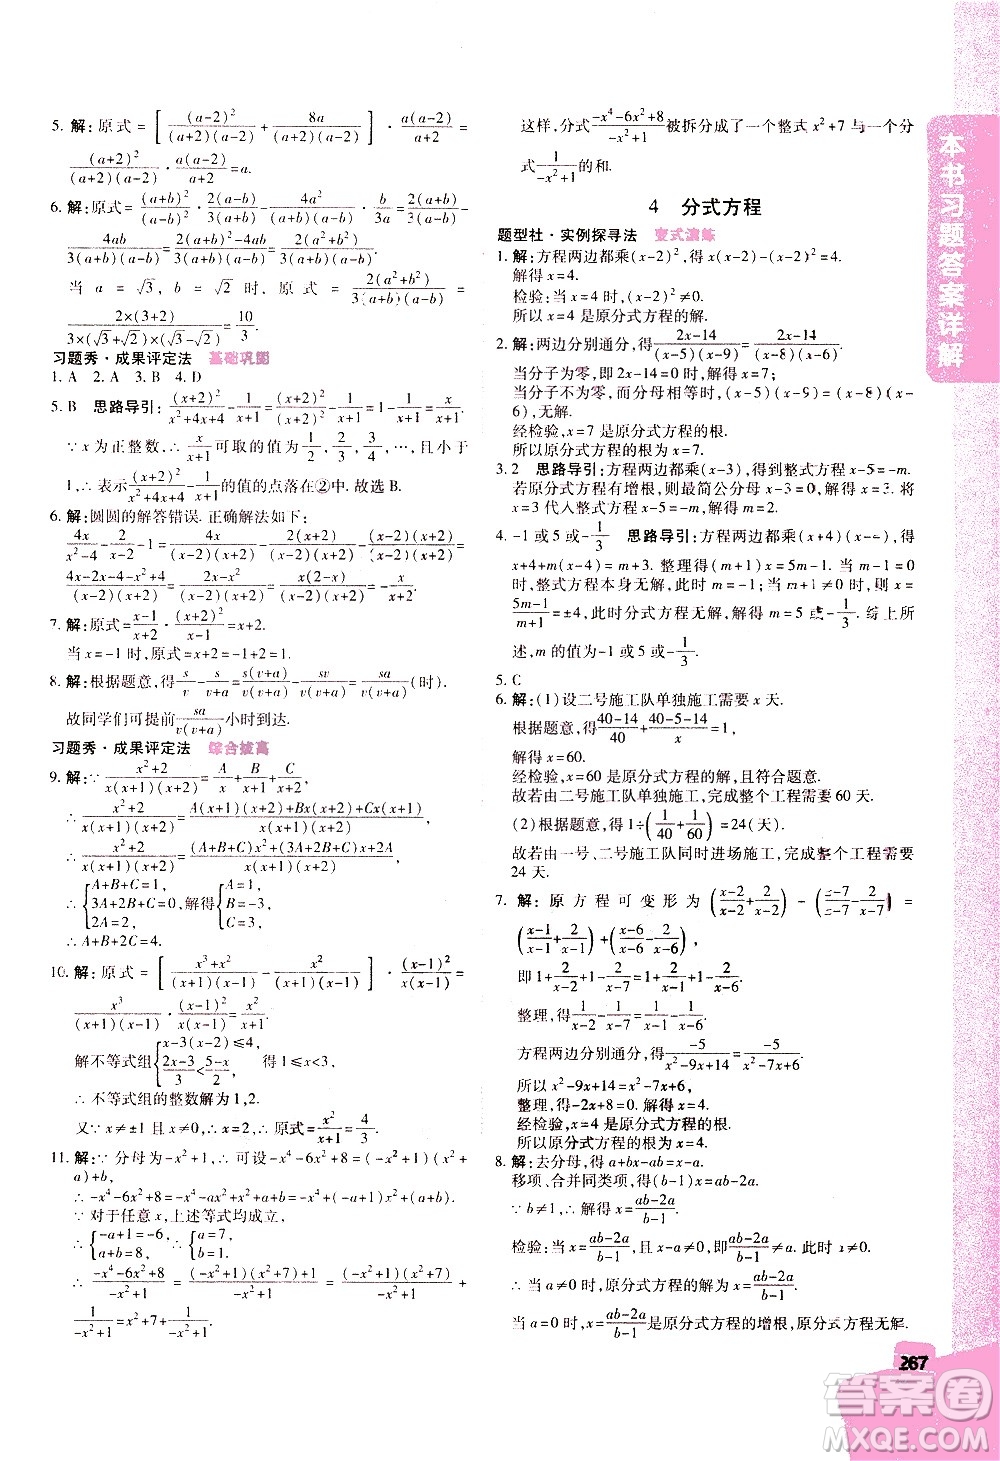 5. 解:原式=[(a-2)²/(a+2)(a-2)+8a/(a+2)(a-2)]·a(a-2)/a+2=
(a+2)²/(a+2)(a-2)·a(a-2)/a+2=a.
6. 解:原式=(a+b)²/(a-b)²·2(a-b)/3(a+b)-4a²/(a+b)(a-b)·b/3a=2(a+b)/3(a-b)-
4ab/3(a+b)(a-b)=2(a+b)²/3(a+b)(a-b)-4ab/3(a+b)(a-b)=2(a²+b²)/3(a+b)(a-b).
当 a=√3, b=√2 时, 原式=2(a²+b²)/3(a+b)(a-b)=
2×(3+2)/3×(√3+√2)×(√3-√2)=10/3.
习题秀·成果评定法 基础巩固
1. A 2. A 3. B 4. D
5. B 思路导引:(x+2)²/x²+4x+4-1/x+1=(x+2)²/(x+2)²-1/x+1=1-1/x+1=x/x+1.
∵x为正整数,∴x/x+1可取的值为1/2,2/3,3/4,…,且小于
1,∴表示(x+2)²/x²+4x+4-1/x+1的值的点落在②中.故选 B.
6. 解:圆圆的解答错误.正确解法如下:
4x/x²-4-2/x-2-1=4x/(x-2)(x+2)-2(x+2)/(x-2)(x+2)-(x-2)(x+2)/(x-2)(x+2)=
4x-2x-4-x²+4/(x-2)(x+2)=2x-x²/(x-2)(x+2)=-x/x+2.
7. 解:原式=x-1/x+2·(x+2)²/x-1=x+2.
当x=-1时,原式=x+2=-1+2=1.
8. 解:根据题意,得s/v-s/v+a=s(v+a)/v(v+a)-sv/v(v+a)=sa/v(v+a)(时).
故同学们可提前sa/v(v+a)小时到达.
习题秀·成果评定法 综合拔高
9. 解:∵x²+2/x(x+1)(x+2)=A/x+B/x+1+C/x+2,
∴x²+2/x(x+1)(x+2)=A(x+1)(x+2)+Bx(x+2)+Cx(x+1)/x(x+1)(x+2).
∴x²+2/x(x+1)(x+2)=(A+B+C)x²+(3A+2B+C)x+2A/x(x+1)(x+2).
∴{A+B+C=1, 3A+2B+C=0, 2A=2, 解得{A=1, B=-3, C=3.
∴A+B+C=1,
∴A+C=4.
10. 解:原式=[x³+x²/(x+1)(x-1)-x²/(x+1)(x-1)]·(x-1)²/x(x-1)=
x³/(x+1)(x-1)·(x-1)²/x(x-1)=x²/x+1.
解不等式组{x-3(x-2)≤4, 2x-3/3<5-x/2, 得1≤x<3.
∴不等式组的整数解为1,2.
又∵x≠±1且x≠0,∴x=2.∴原式=x²/x+1=4/3.
11. 解:∵分母为-x²+1,∴可设-x⁴-6x²+8=(-x²+1)(x²+
a)+b,
∴-x⁴-6x²+8=-x⁴-ax²+x²+a+b=-x⁴+(-a+1)x²+a+b.
∵对于任意x,上述等式均成立,
∴{-a+1=-6, a+b=8, ∴{a=7, b=1.
∴-x⁴-6x²+8/-x²+1=(-x²+1)(x²+7)+1/-x²+1=(-x²+1)(x²+7)/-x²+1+
1/-x²+1=x²+7+1/-x²+1.
这样,分式-x⁴-6x²+8/-x²+1被拆分成了一个整式x²+7与一个分
式1/-x²+1的和.
4 分式方程
题型社·实例探寻法 变式演练
1. 解:方程两边都乘(x-2)²,得x(x-2)-(x-2)²=4.
解得x=4.
检验:当x=4时,(x-2)²≠0.
所以x=4是原分式方程的解.
2. 解:两边分别通分,得2x-14/(x-5)(x-9)=2x-14/(x-8)(x-6).
当分子为零,即2x-14=0时,解得x=7;
当分子不为零,而分母相等时,(x-5)(x-9)=(x-8)(x-
6),无解.
经检验,x=7是原分式方程的根.
所以原分式方程的根为x=7.
3. 2 思路导引:方程两边都乘(x-3),得到整式方程x-5=-m.
若原分式方程有增根,则最简公分母x-3=0,解得x=3.将
x=3代入整式方程x-5=-m,解得m=2.
4. -1或5或-1/3 思路导引:方程两边都乘(x+4)(x-4),得
x+4+m(x-4)=m+3.整理,得(m+1)x=5m-1.当m+1=0
时,整式方程本身无解,此时m=-1;当m+1≠0时,则x=
5m-1/m+1=±4,此时分式方程无解,解得m=5或-1/3.综上所
述,m的值为-1或5或-1/3.
5. C
6. 解:(1)设二号施工队单独施工需要x天.
根据题意,得40-14/40+40-5-14/x=1.
解得x=60.
经检验,x=60是原分式方程的解,且符合题意.
故若由二号施工队单独施工,完成整个工程需要60天.
(2)根据题意,得1÷(1/40+1/60)=24(天).
故若由一号、二号施工队同时进场施工,完成整个工程需要
24天.
7. 解:原方程可变形为(x-2/x-2+2/x-2)-(x-7/x-7+2/x-7)=
(x-1/x-1+2/x-1)-(x-6/x-6+2/x-6).
即1+2/x-2-1-2/x-7=1+2/x-1-1-2/x-6.
整理,得1/x-2-1/x-7=1/x-1-1/x-6.
方程两边分别通分,得-5/x²-9x+14=-5/x²-7x+6.
所以x²-9x+14=x²-7x+6.
整理,得-2x+8=0.解得x=4.
经检验,x=4是原分式方程的根.
所以原分式方程的根为x=4.
8. 解:去分母,得a+bx-ab=x-a.
移项、合并同类项,得(b-1)x=ab-2a.
∵b≠1,∴b-1≠0.∴x=ab-2a/b-1.
检验:当x=ab-2a/b-1=a时,a=0.
∴当a≠0时,原分式方程的解为x=ab-2a/b-1;
当a=0时,x=ab-2a/b-1是原分式方程的增根,原分式方程无解.
本书习题答案详解
267
答案圈
MXQE.COM